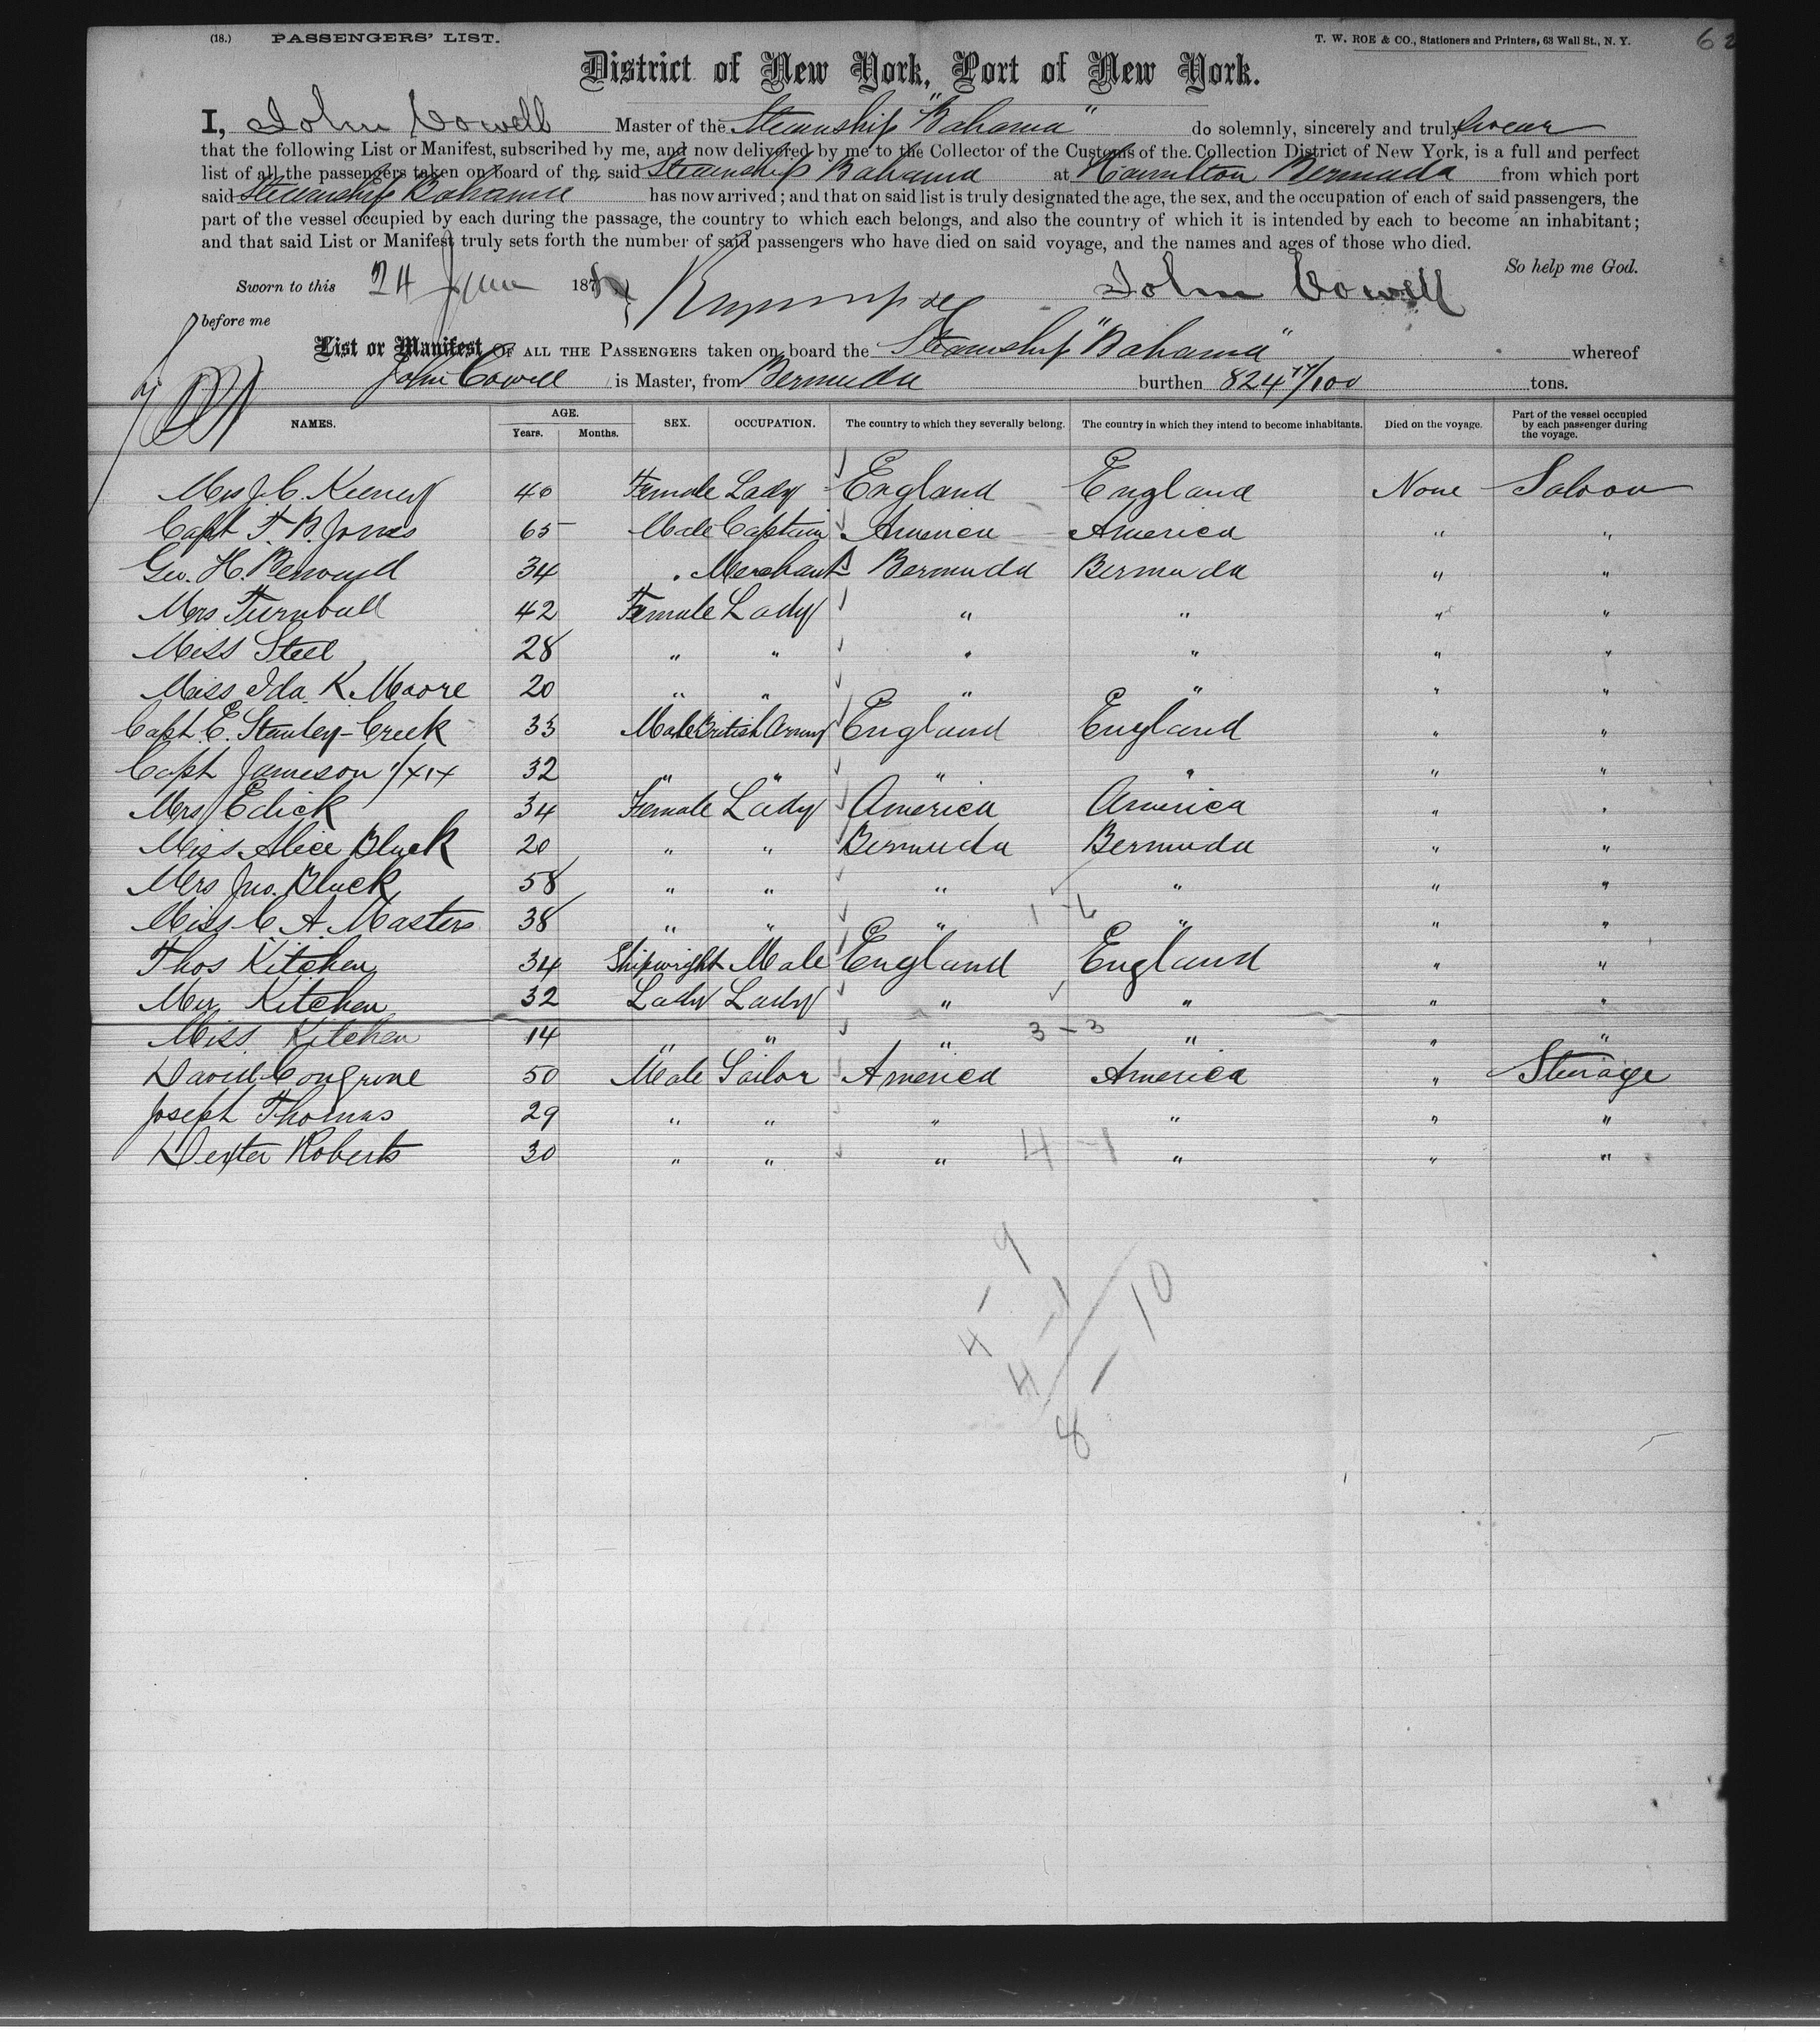 (18.) PASSENGERS' LIST. T. W. ROE & CO., Stationers and Printers, 63 Wall St., N. Y. 62
District of New York, Port of New York.
I, John Cowell Master of the Steamship "Bahama" do solemnly, sincerely and truly swear
that the following List or Manifest, subscribed by me, and now delivered by me to the Collector of the Customs of the Collection District of New York, is a full and perfect
list of all the passengers taken on board of the said Steamship Bahama at Hamilton Bermuda from which port
said Steamship Bahama has now arrived; and that on said list is truly designated the age, the sex, and the occupation of each of said passengers, the
part of the vessel occupied by each during the passage, the country to which each belongs, and also the country of which it is intended by each to become an inhabitant;
and that said List or Manifest truly sets forth the number of said passengers who have died on said voyage, and the names and ages of those who died.
So help me God.
Sworn to this 24 June 187 John Cowell
before me
List or Manifest OF ALL THE PASSENGERS taken on board the Steamship "Bahama" whereof
John Cowell is Master, from Bermuda burthen 824 17/100 tons.
NAMES. AGE. Years. Months. SEX. OCCUPATION. The country to which they severally belong. The country in which they intend to become inhabitants. Died on the voyage. Part of the vessel occupied by each passenger during the voyage.
Mrs J. C. 40 Female Lady England England None Saloon
Capt T. B. Jones 65 Male Captain America America " "
Geo. H. 34 " Merchant Bermuda Bermuda " "
Mrs Turnbull 42 Female Lady " " " "
Miss Steel 28 " " " " " "
Miss Ida K. Moore 20 " " " " " "
Capt. E. Stanley-Creek 33 Male British Army England England " "
Capt Jameson 1/XIX 32 " " " " " "
Mrs Edick 34 Female Lady America America " "
Miss Alice Bluck 20 " " Bermuda Bermuda " "
Mrs Jno. Bluck 58 " " " " " "
Miss C. A. Masters 38 " " " 1-6 " " "
Thos Kitchen 34 Shipwright Male England England " "
Mrs Kitchen 32 Lady Lady " " " "
Miss Kitchen 14 " " " 3-3 " " "
David 50 Male Sailor America America " Sterage
Joseph Thomas 29 " " " " " "
Dexter Roberts 30 " " " 4-1 " " "
4-9
4-1
8-10